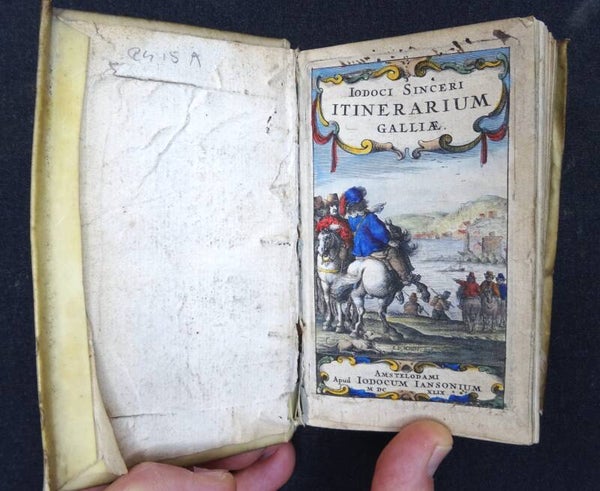 2415A
IODOCI SINCERI
ITINERARIUM
GALLIÆ.
AMSTELODAMI
Apud IODOCUM IANSONIUM
M DC XLIX